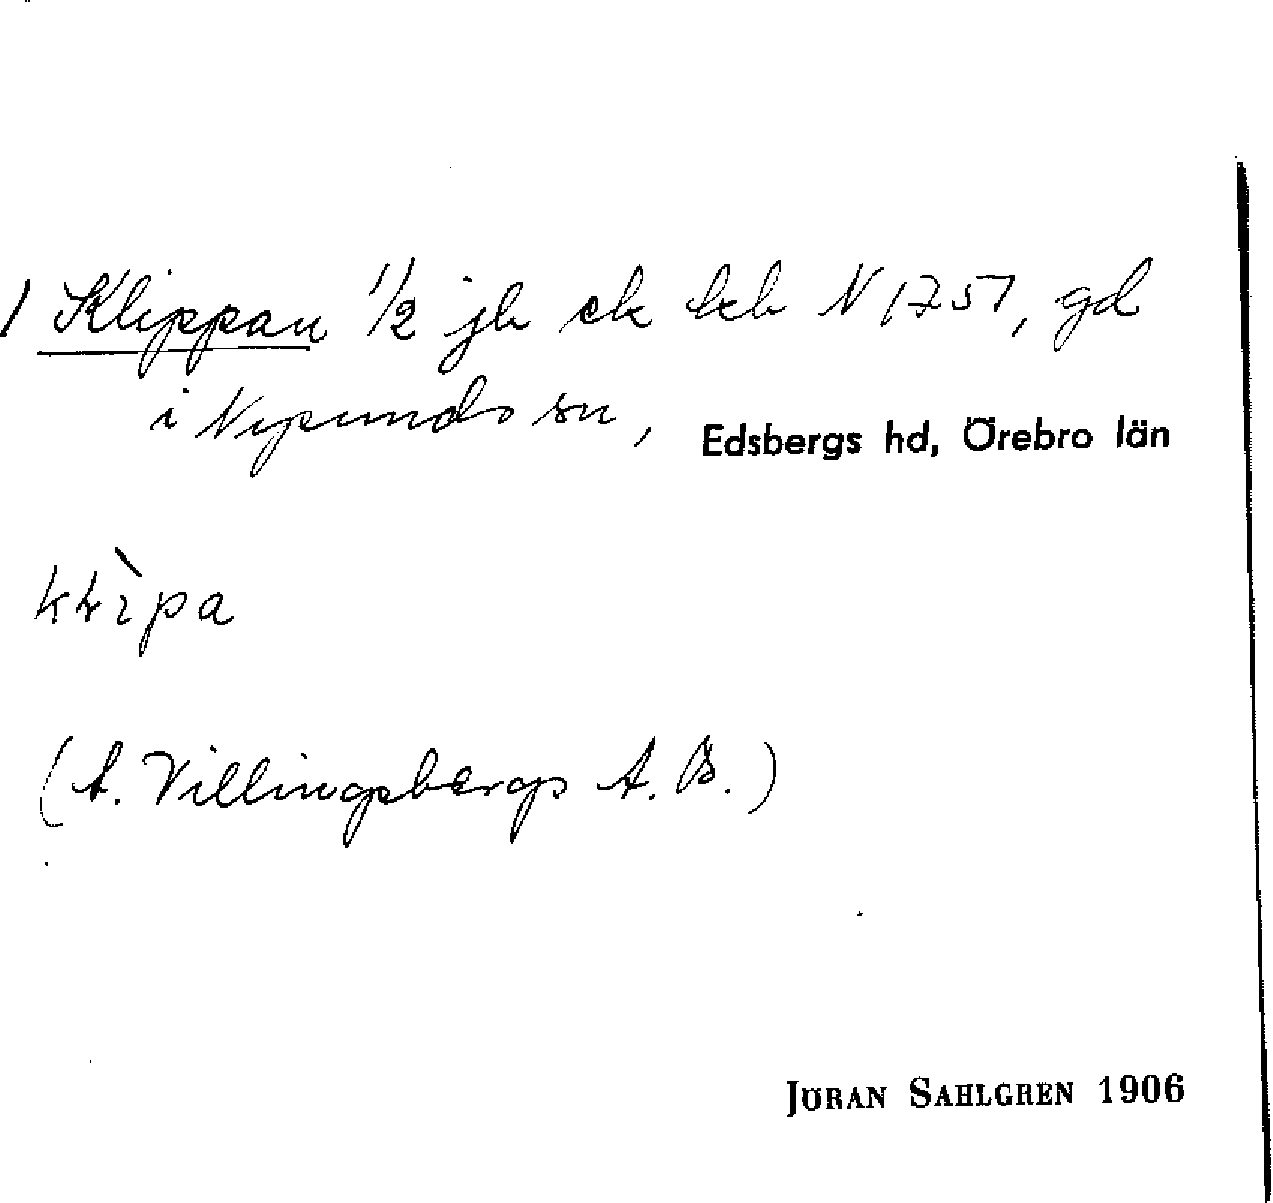 1 Klippan 1/2 jb sk kb N 1751, gd
i Nysunds sn, Edsbergs hd, Örebro län
kłìpa
(t. Villingsbergs A. B.)
JÖRAN SAHLGREN 1906